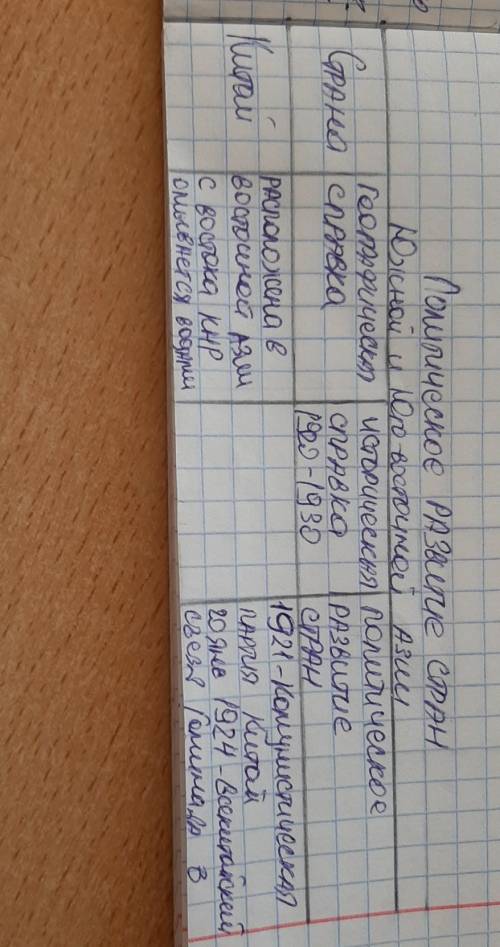 Политическое развитие стран
Южной и Юго-восточной Азии
Страна
Географическая справка
историческая справка 1920-1930
политическое развитие стран
Китай
расположена в
восточной Азии
с востока КНР
омывается водами
1921 - Комунистическая
партия Китай
20 янв 1924 - Всекитайский
съезд в